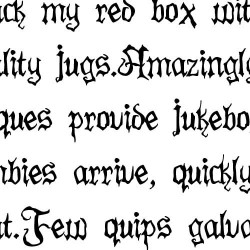 ck my red box wit
lity jugs. Amazingly
ques provide jukebo
mbies arrive, quickly
t. Few quips galv